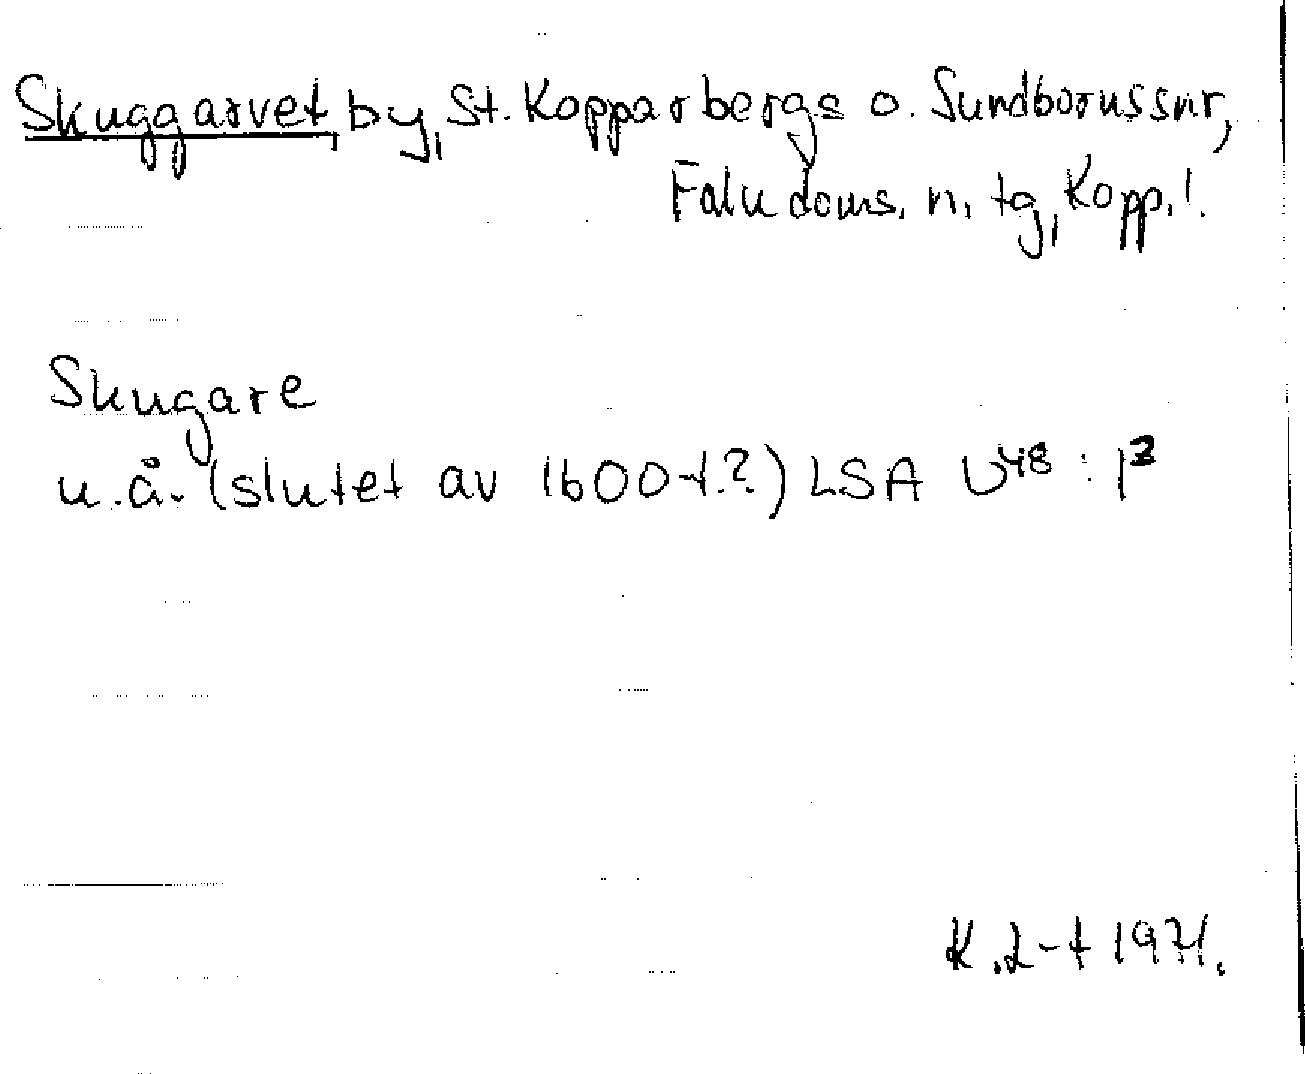 Skuggarvet, by, St. Kopparbergs o. Sundbornssnr,
Falu doms. n. tg, Kopp. l.
Skugare
u.å. (slutet av 1600-t.?) LSA U48 : 1²
K. L-t 1971.